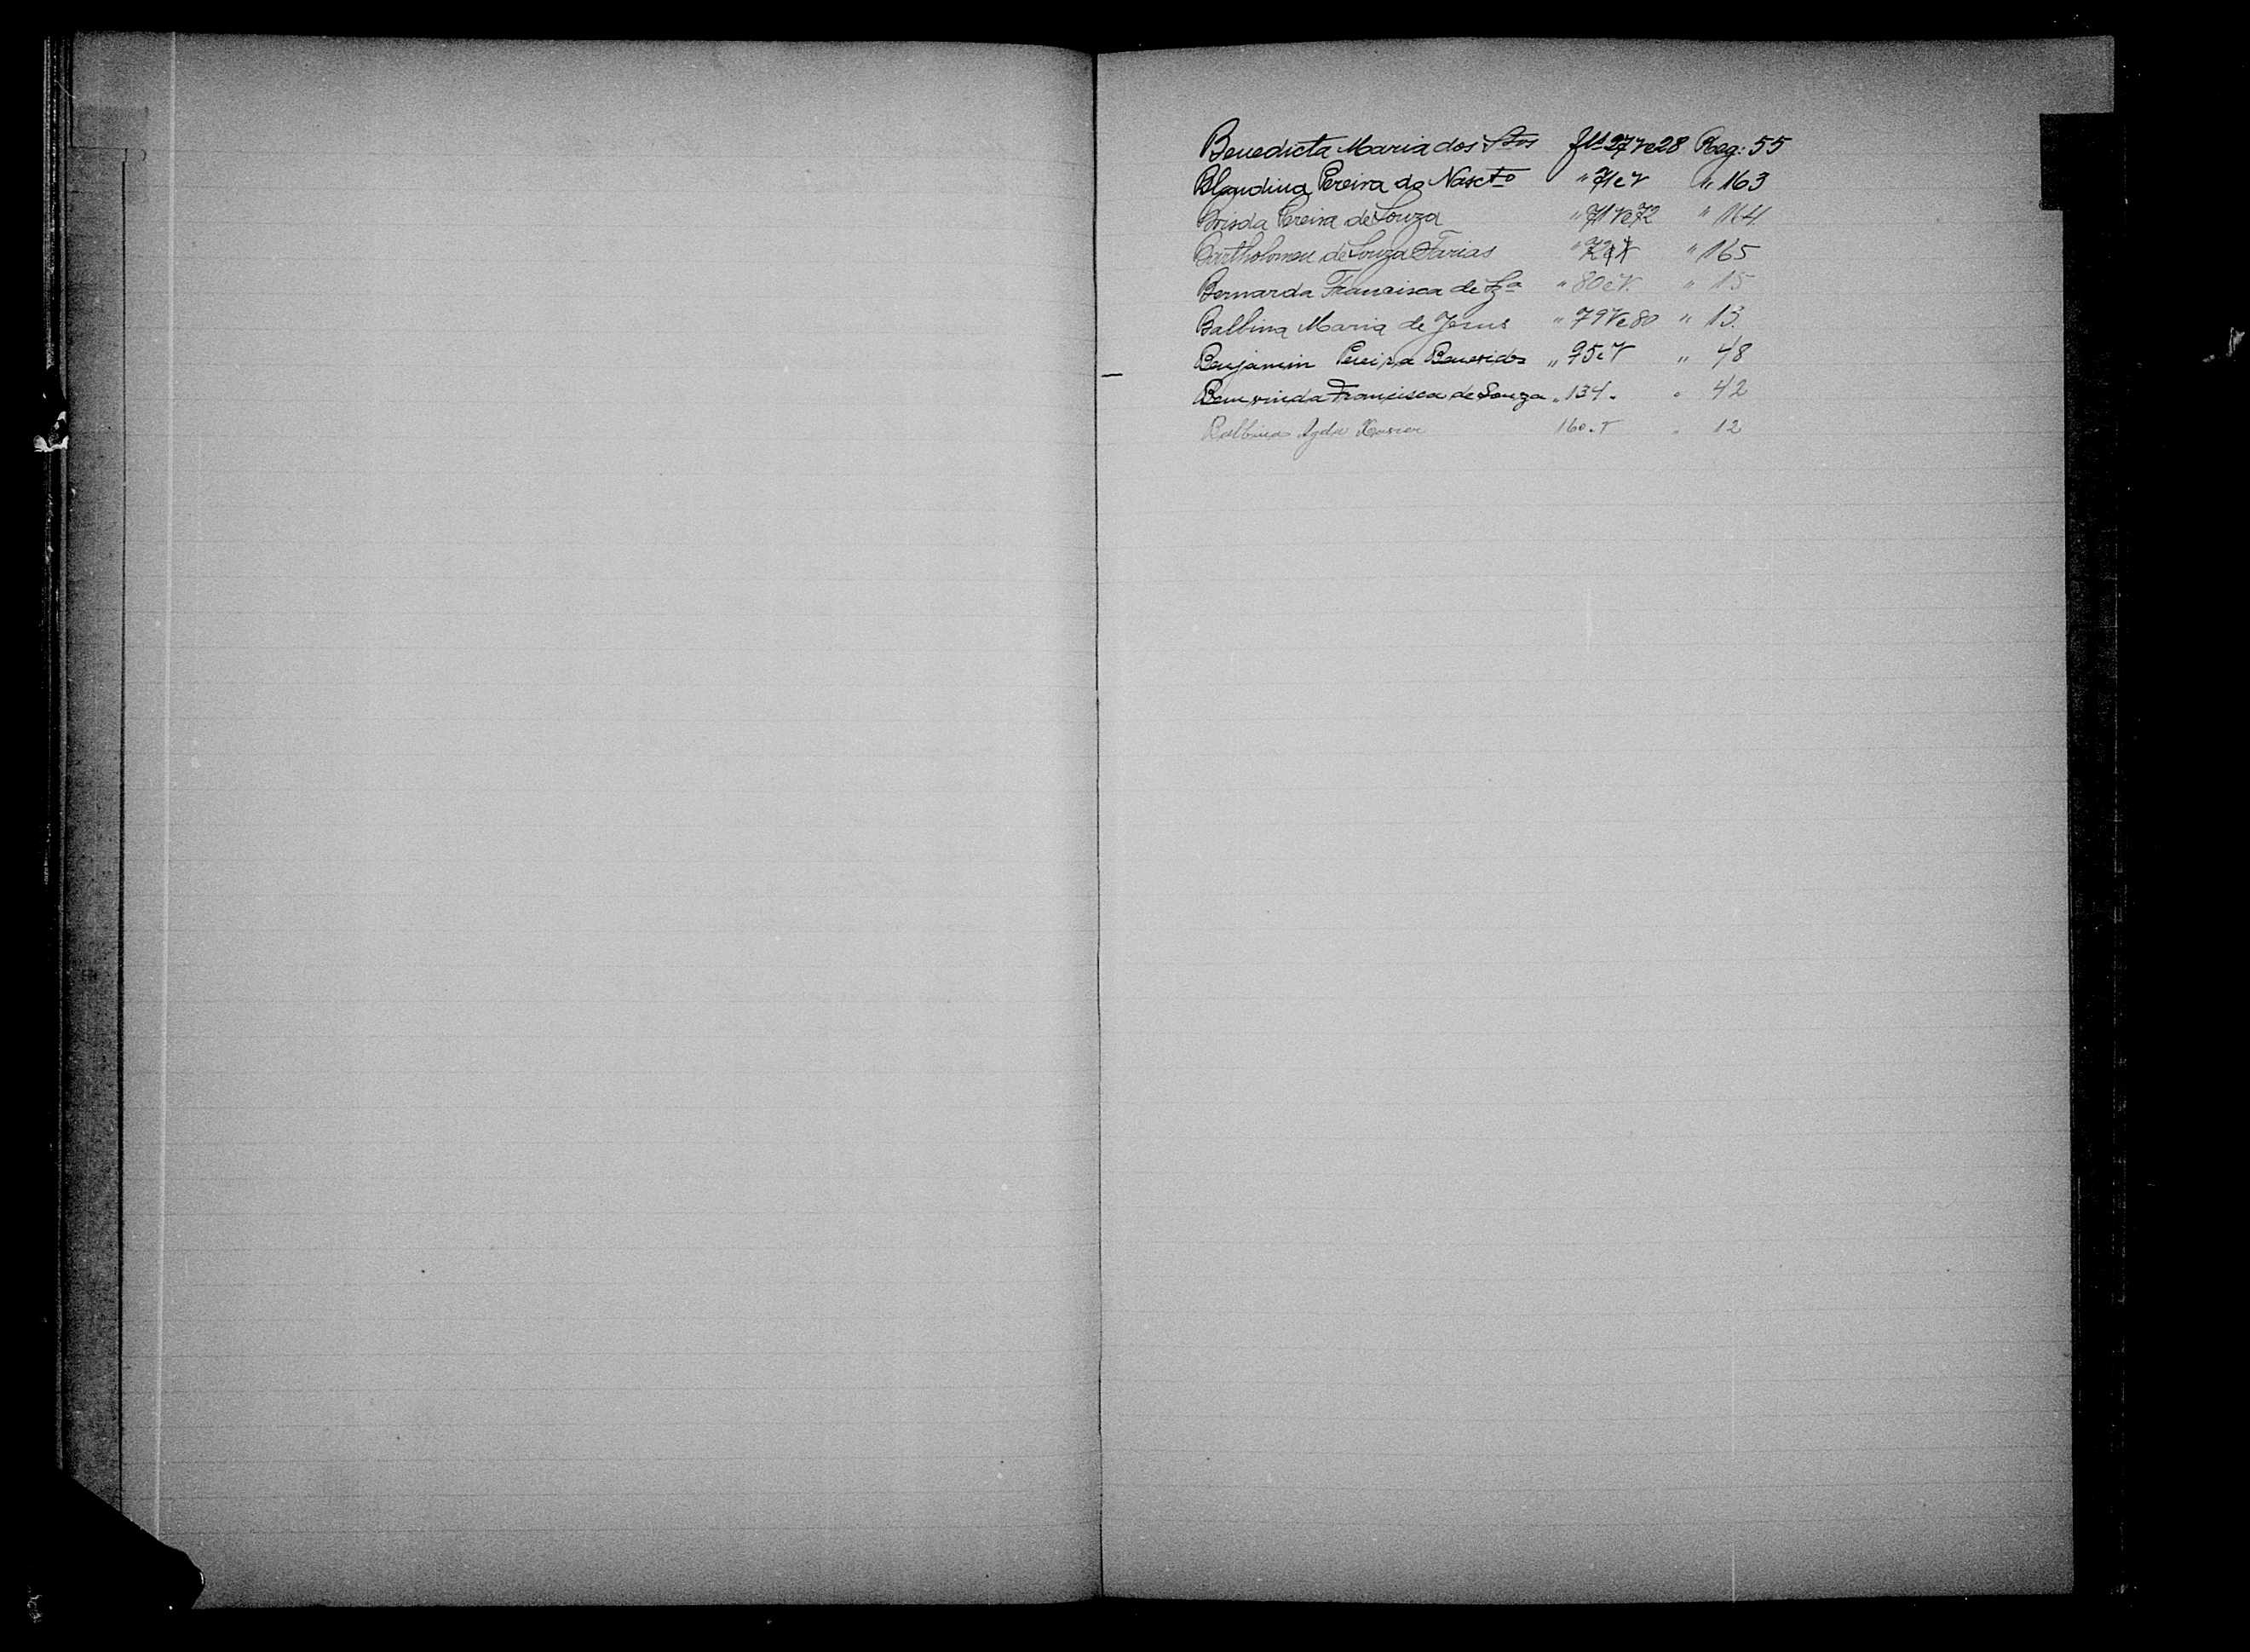 Benedicta Maria dos Stos fls 27 v e 28 Reg: 55
Blandina Pereira do Nascto " 71 e v " 163
Brisda Pereira de Souza " 71 v e 72 " 164
Bartholomeu de Souza Farias " 72 e v " 165
Bernarda Francisca de Sza " 80 e v. " 15
Balbina Maria de Jesus " 79 v e 80 " 13.
Benjamin Pereira Benevides " 95 e v " 48
Bemvinda Francisca de Souza " 134. " 42
Balbina 160. v " 12